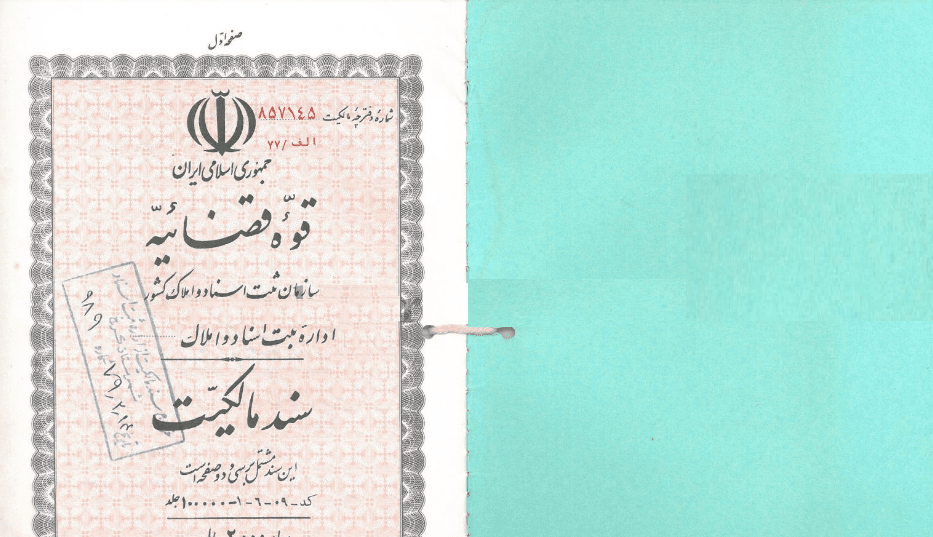 صفحه اوّل
شمارهٔ دفترچهٔ مالکیت ۸۵۷۱٤۵
الف /۷۷
جمهوری اسلامی ایران
قوّه قضائیّه
سازمان ثبت اسناد و املاک کشور
ادارهٔ ثبت اسناد و املاک
سند مالکیّت
این سند مشتمل بر سی و دو صفحه است
کد - ۰۹-۶-۱-۱۰۰۰۰۰ جلد
۹۸۹
شماره
تاریخ ۷۹/۲/۱۴